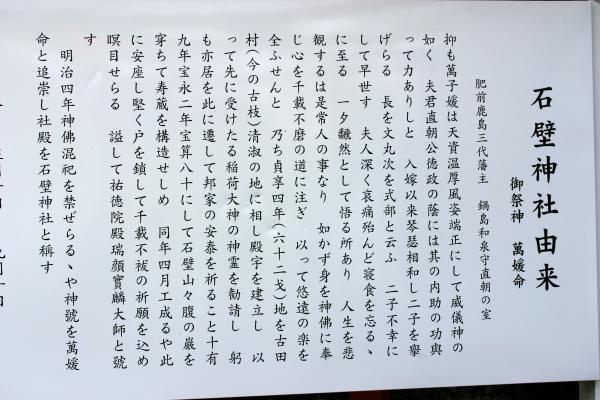 石壁神社由来
御祭神　萬媛命
肥前鹿島三代藩主　鍋島和泉守直朝の室
抑も萬子媛は天資温厚風姿端正にして威儀神の
如く　夫君直朝公徳政の蔭には其の内助の功與
って力ありしと　入嫁以来琴瑟相和し二子を擧
げらる　長を文丸次を式部と云ふ　二子不幸に
して早世す　夫人深く哀痛殆んど寝食を忘るゝ
に至る　一夕飜然として悟る所あり　人生を悲
観するは是常人の事なり　如かず身を神佛に奉
じ心を千載不磨の道に注ぎ　以って悠遠の楽を
全ふせんと　乃ち貞享四年(六十二歳)地を古田
村(今の古枝)清淑の地に相し殿宇を建立し　以
って先に受けたる稲荷大神の神霊を勧請し　躬
も亦居を此に遷して邦家の安泰を祈ること十有
九年宝永二年宝算八十にして石壁山々腹の巌を
穿ちて寿蔵を構造せしめ　同年四月工成るや此
に安座し堅く戸を鎖して千載不祓の祈願を込め
瞑目せらる　謚して祐徳院殿瑞顔實麟大師と號
す
明治四年神佛混祀を禁ぜらるゝや神號を萬媛
命と追崇し社殿を石壁神社と稱す